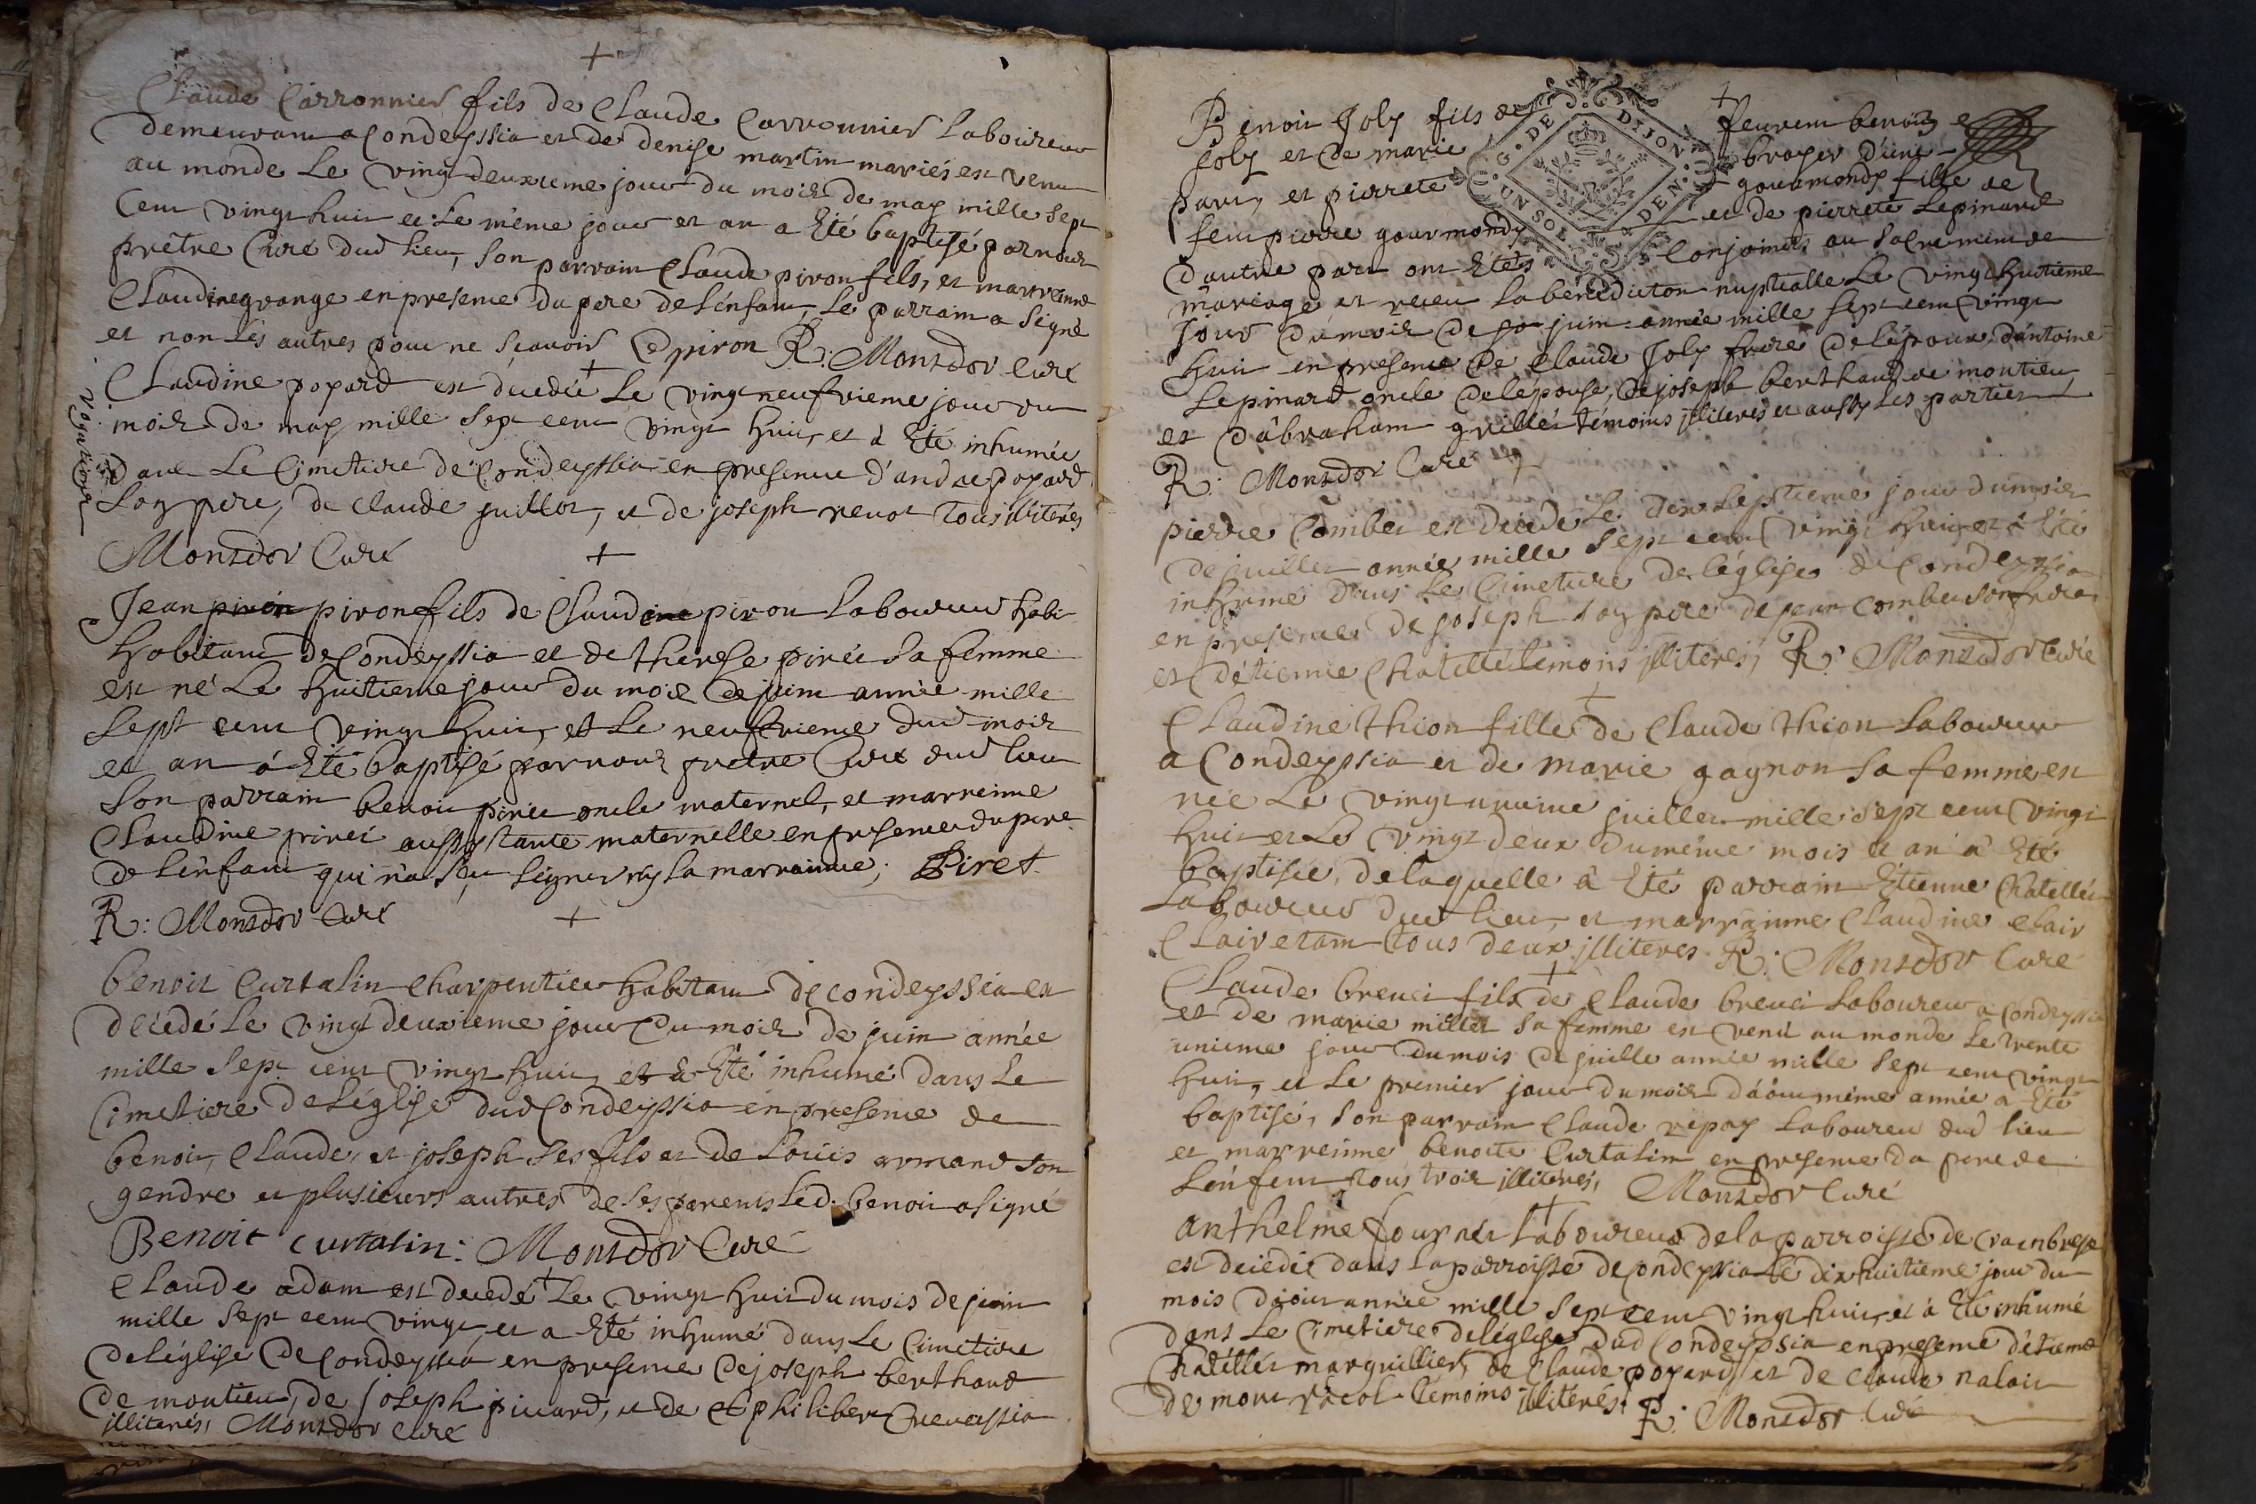 Claude Carronnier fils de Claude Carronnier laboureur
demeurant a Condeyssia et de denise martin mariés est venu
au monde Le vingt deuxieme jour du mois de may mille sept
Cent vingt huit et Le même jour et an a Eté baptisé par nous
prêtre Curé dud lieu, son parrain Claude piron fils, et marrainne
Claudine grange en presence du pere de l'énfant, Le parrain a signé
et non Lés autres pour ne scavoir C piron R: Monsdor Curé
Claudine popard est décedée Le vingt neufvieme jour du
mois de may mille sept cent vingt huit, et à Eté inhumée
dans Le Cimetiere de Condeyssia en presence d'andre popard
son pere, de Claude guillot, et de joseph renot tous illiterés
Monsdor Curé
Jean piron piron fils de Claudine piron laboureur habi
habitant de Condeyssia et de therese pirée sa femme
est né Le huitieme jour du mois de juin année mille
sept cent vingt huit, et Le neufvieme dud mois
et an à Eté baptisé par nous pretre Curé dud lieu
son parrain benoit pirée oncle maternel, et marreinne
Claudine pirée aussy tante maternelle en presence du pere
de L'énfant qui n'a sçu signer ny la marrainne; Piret
R: Monsdor Curé
benoit Curtalin charpentier habitant de condeyssia est
décédé Le vingt deuxieme jour du mois de juin année
mille sept cent vingt huit, et à Eté inhumé dans Le
Cimetiere de L'église dud Condeyssia en presence de
benoit, Claude, et joseph ses fils et de Loüis armand son
gendre et plusieurs autres de ses parents Léd. benoit a signé
Benoit curtalin: Monsdor Curé
Claude adam est decedé Le vingt huit du mois de juin
mille sept cent vingt et a Eté inhumé dans Le Cimetiere
de l'église de Condeyssia en presence de joseph berthaud
de montieu, de joseph picard, et de philibert
illiterés, Monsdor Curé
Benoit Joly fils de feu vent benoit
Joly et de marie broyer d'une
part, et pierrete gourmondy fille de
feu pierre gourmondy et de pierrete Lepinard
d'autre part ont Etés Conjoints au sacrement de
mariage et receu la bénédiction nuptialle Le vingt huitieme
jour du mois de juin année mille sept cent vingt
huit en presence de Claude Joly frere de l'époux, d'antoine
Lepinard oncle de l'épouse, de joseph berthaud de montieu
et d'âbraham grillét témoins illiterés et aussy les parties
R: Monsdor Curé
pierre Combet est décedé Le dix septieme jour du mois
de juillet année mille sept cent vingt huit et à Eté
inhumé dans Le Cimetiere de l'église de Condeyssia
en presence de joseph son pere de jean combet son frere
et d'étienne Chatillét témoins illiterés, R: Monsdor Curé
Claudine thion fille de Claude thion laboureur
a Condeyssia et de marie gagnon sa femme est
née Le vingt unieme juillet mille sept cent vingt
huit et Le vingt deux du même mois et an à Eté
baptisée, de laquelle à Eté parrain Etienne Chatillét
Laboureur dud lieu, et marrainne Claudine clair
Clairetant tous deux illiteres R: Monsdor Curé
Claude brevet fils de Claude brevet laboureur a Condeyssia
et de marie millet sa femme est venu au monde Le trente
unieme jour du mois de juille année mille sept cent vingt
huit, et Le premier jour du mois d'àout même année a Eté
baptisé, son parrain Claude repay laboureu dud lieu
et marreinne benoite Curtalin en presence du pere de
L'énfent tous trois illiterés, Monsdor Curé
anthelme fournér laboureur de la parroisse de
est décedé dans la parroisse de Condeyssia Le dix huitieme jour du
mois d'àout année mille sept cent vingt huit, et à Eté inhumé
dans Le Cimetiere de l'église dud Condeyssia en presence d'étienne
Chatillét marguillier, de Claude popard, et de Claude nalait
de mont témoins illiterés. R: Monsdor Curé
G. G. DE DIJON
UN SOL DEN.